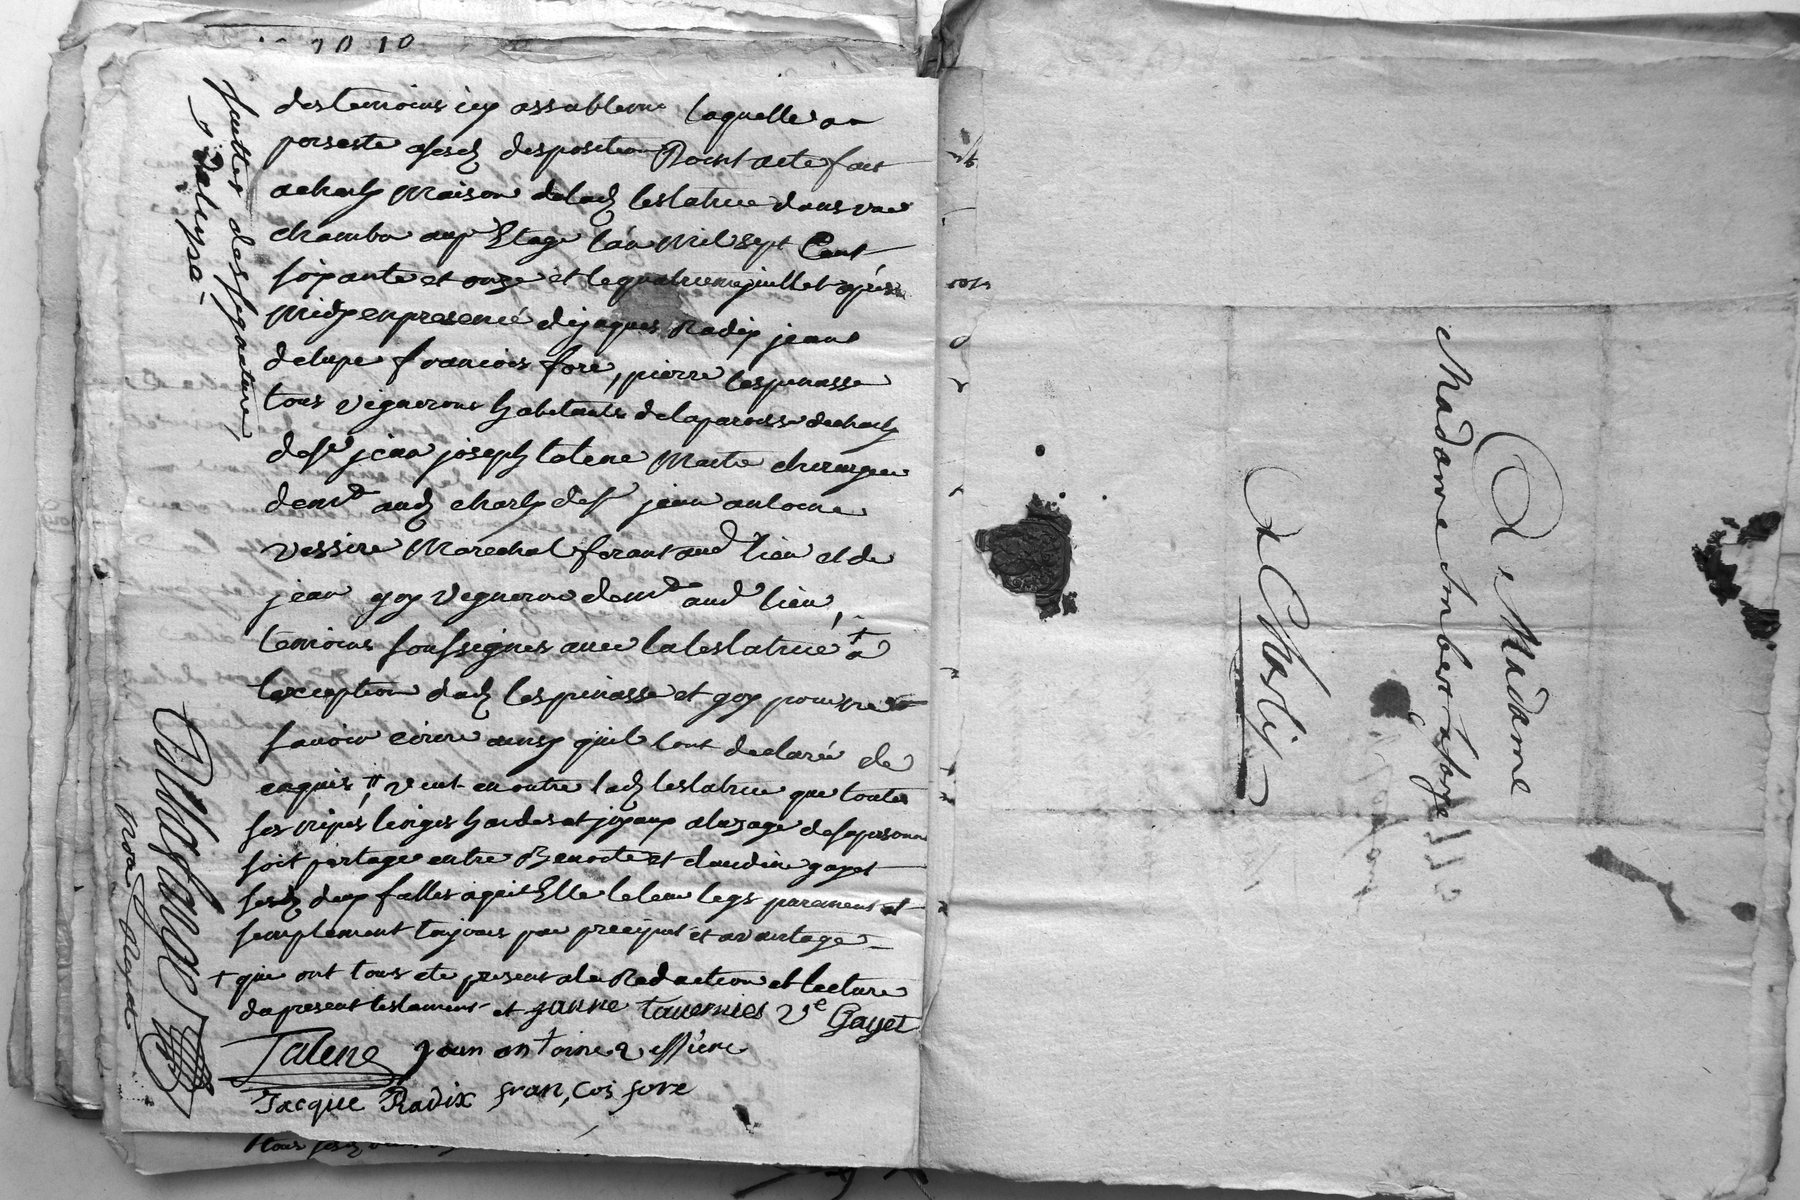 des temoins icy assablemt laquelle a
persesté à sesd disposition Dont acte fait
a charly Maison de lad testatrice dans une
chambre aux Etage l'an Mil Sept Cent
soixante et onze et le quatrieme juillet après
Midy en presence de jaques Radix jean
delupe francois fore, pierre lespinasse
tous vignerons habitants de la paroisse de charly
de sr jean joseph talene Maitre chirurgien
demt aud charly de sr jean antoine
vessiere Marechal ferant aud lieu et de
jean goy vigneron demt aud lieu,
temoins soussignes avec la testatrice + a
lexception desd lespinasse et goy pour ne
savoir ecrire ainsy qu'il lont declaré de
enquis // veut en outre lad testatrice que toutes
ses nipes linges hardes et joyaux a luzage de sa personne
soit partage entre Benoite et claudine gayet
sesd deux filles a qui Elle le leur legs purement et
simplement toujours par preciput et avantage
+ qui ont tous eté present a la Redaction et lecture
du present testament et janne tavernier ve Gayet
Talene jean antoine vessiere
Jacque Radix fran,cois fore
faittes de signature
j dalupe
Delafarge
A Madame
Madame Imbert
A Charly